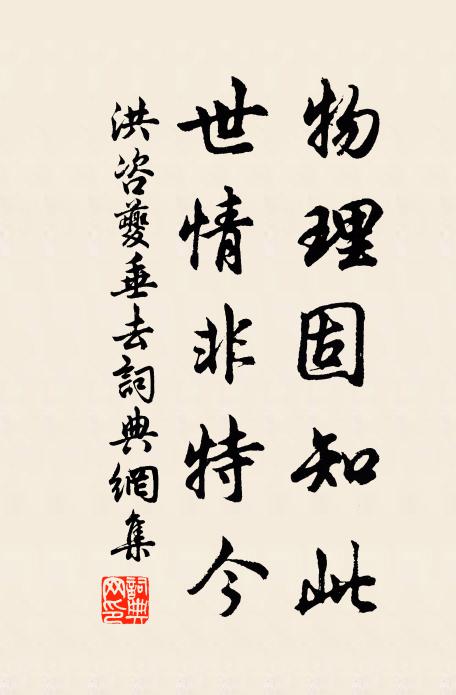 物理固知此
世情非特今
洪咨夔垂去詞典網集
詞典网印